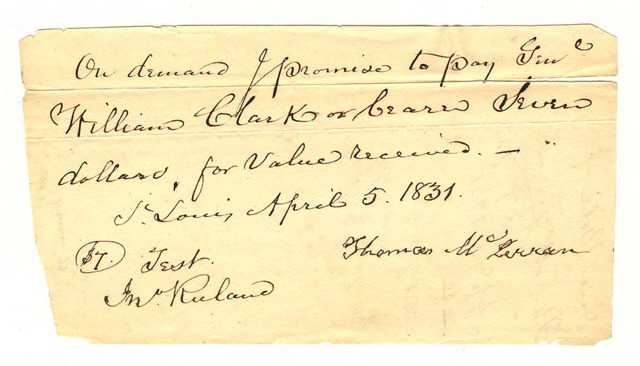 On demand I promise to pay Genl
William Clark or bearer Seven
dollars, for Value received. —
St Louis April 5. 1831.
$7. Test.
Thomas Mc
Jno Ruland